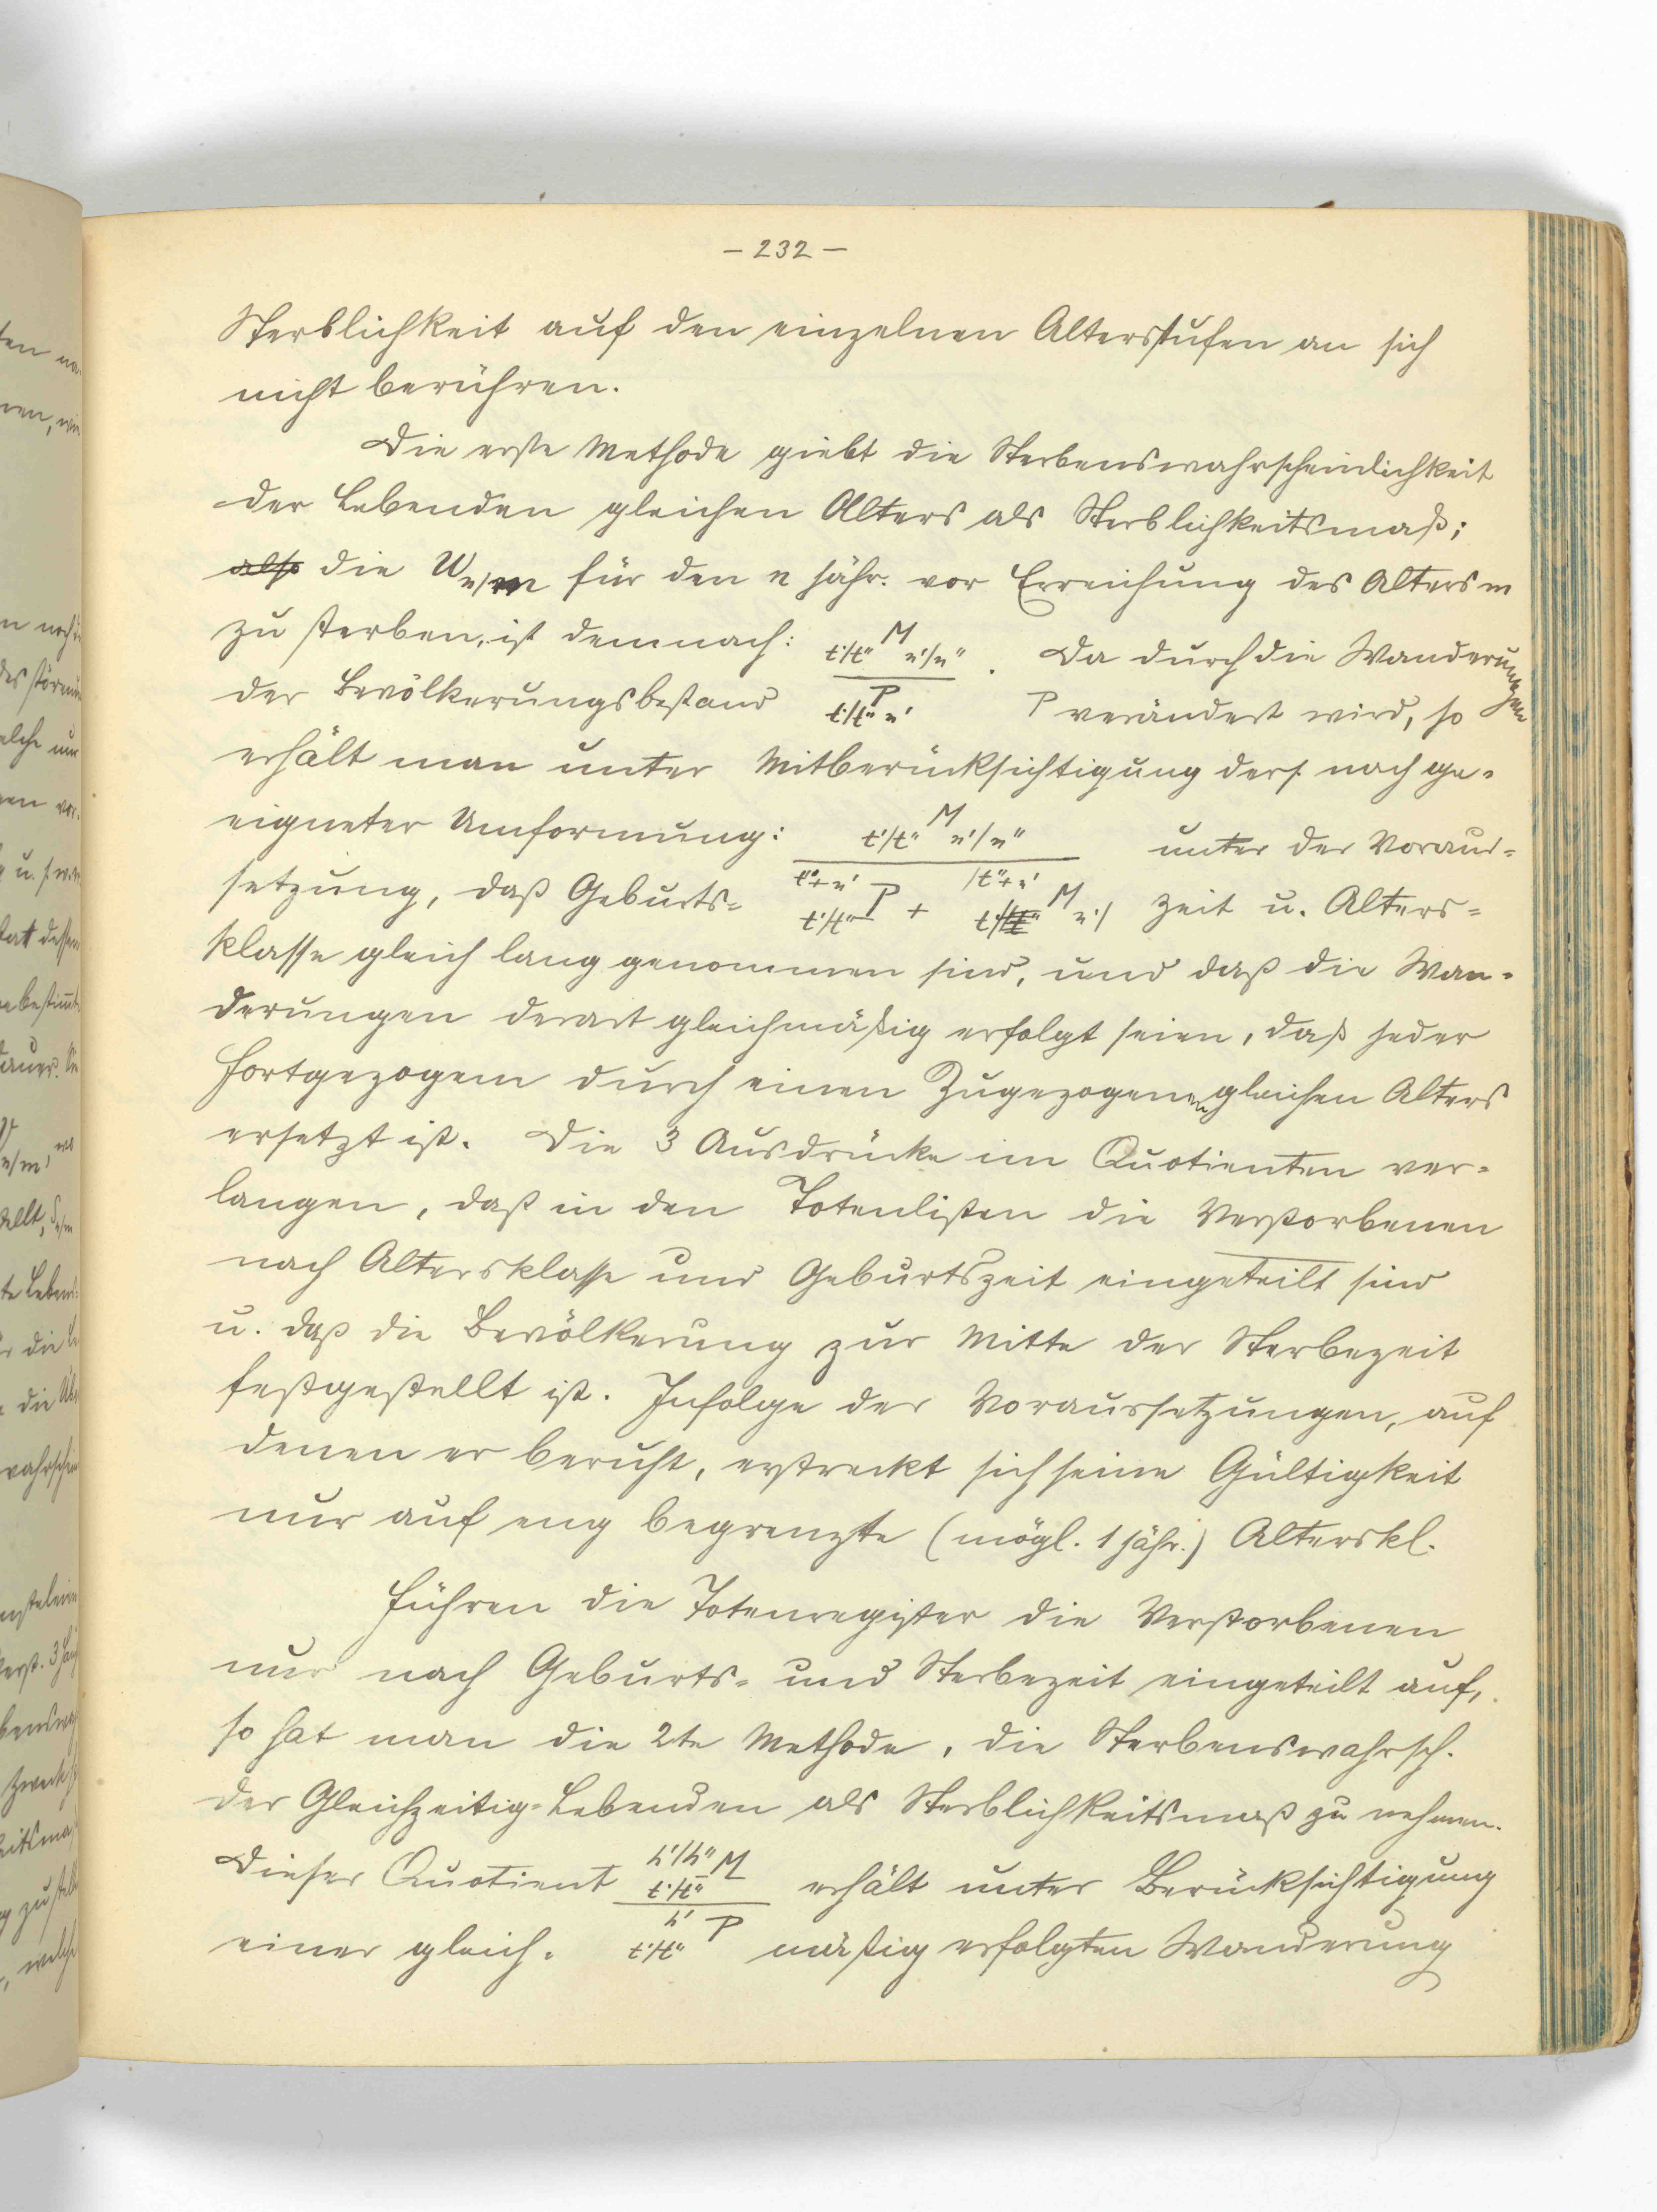 – 232 –
Sterblichkeit auf den einzelnen Altersstufen an sich
nicht berühren.
Die erste Methode giebt die Sterbenswahrscheinlichkeit
der Lebenden gleichen Alters als Sterblichkeitsmaß;
also die W n/m für den n jähr. vor Erreichung des Alters m
zu sterben, ist demnach: t'/t'' M n'/n'' . Da durch die Wanderungen
der Bevölkerungsbestand t'/t'' P n' P verändert wird, so
erhält man unter Mitberücksichtigung ders. nach ge-
eigneter Umformung: t'/t'' M n'/n'' unter der Voraus-
setzung, daß Geburts- t'/t'' t''+n' P + t'/ /t''+n' M n'/ zeit u. Alters-
klasse gleich lang genommen sind, und daß die Wan-
derungen derart gleichmäßig erfolgt seien, daß jeder
Fortgezogene durch einen Zugezogenen gleichen Alters
ersetzt ist. Die 3 Ausdrücke im Quotienten ver-
langen, daß in den Totenlisten die Verstorbenen
nach Altersklasse und Geburtszeit eingeteilt sind
u. daß die Bevölkerung zur Mitte der Sterbezeit
festgestellt ist. Infolge der Voraussetzungen, auf
denen er beruht, erstreckt sich seine Gültigkeit
nur auf eng begrenzte (mögl. 1 jähr.) Alterskl.
Führen die Totenregister die Verstorbenen
nur nach Geburts- und Sterbezeit eingeteilt auf,
so hat man die 2te Methode, die Sterbenswahrsch.
der Gleichzeitig-Lebenden als Sterblichkeitsmaß zu nehmen.
Dieser Quotient h'/h'' M t'/t'' erhält unter Berücksichtigung
einer gleich- h' P t'/t'' mäßig erfolgten Wanderung